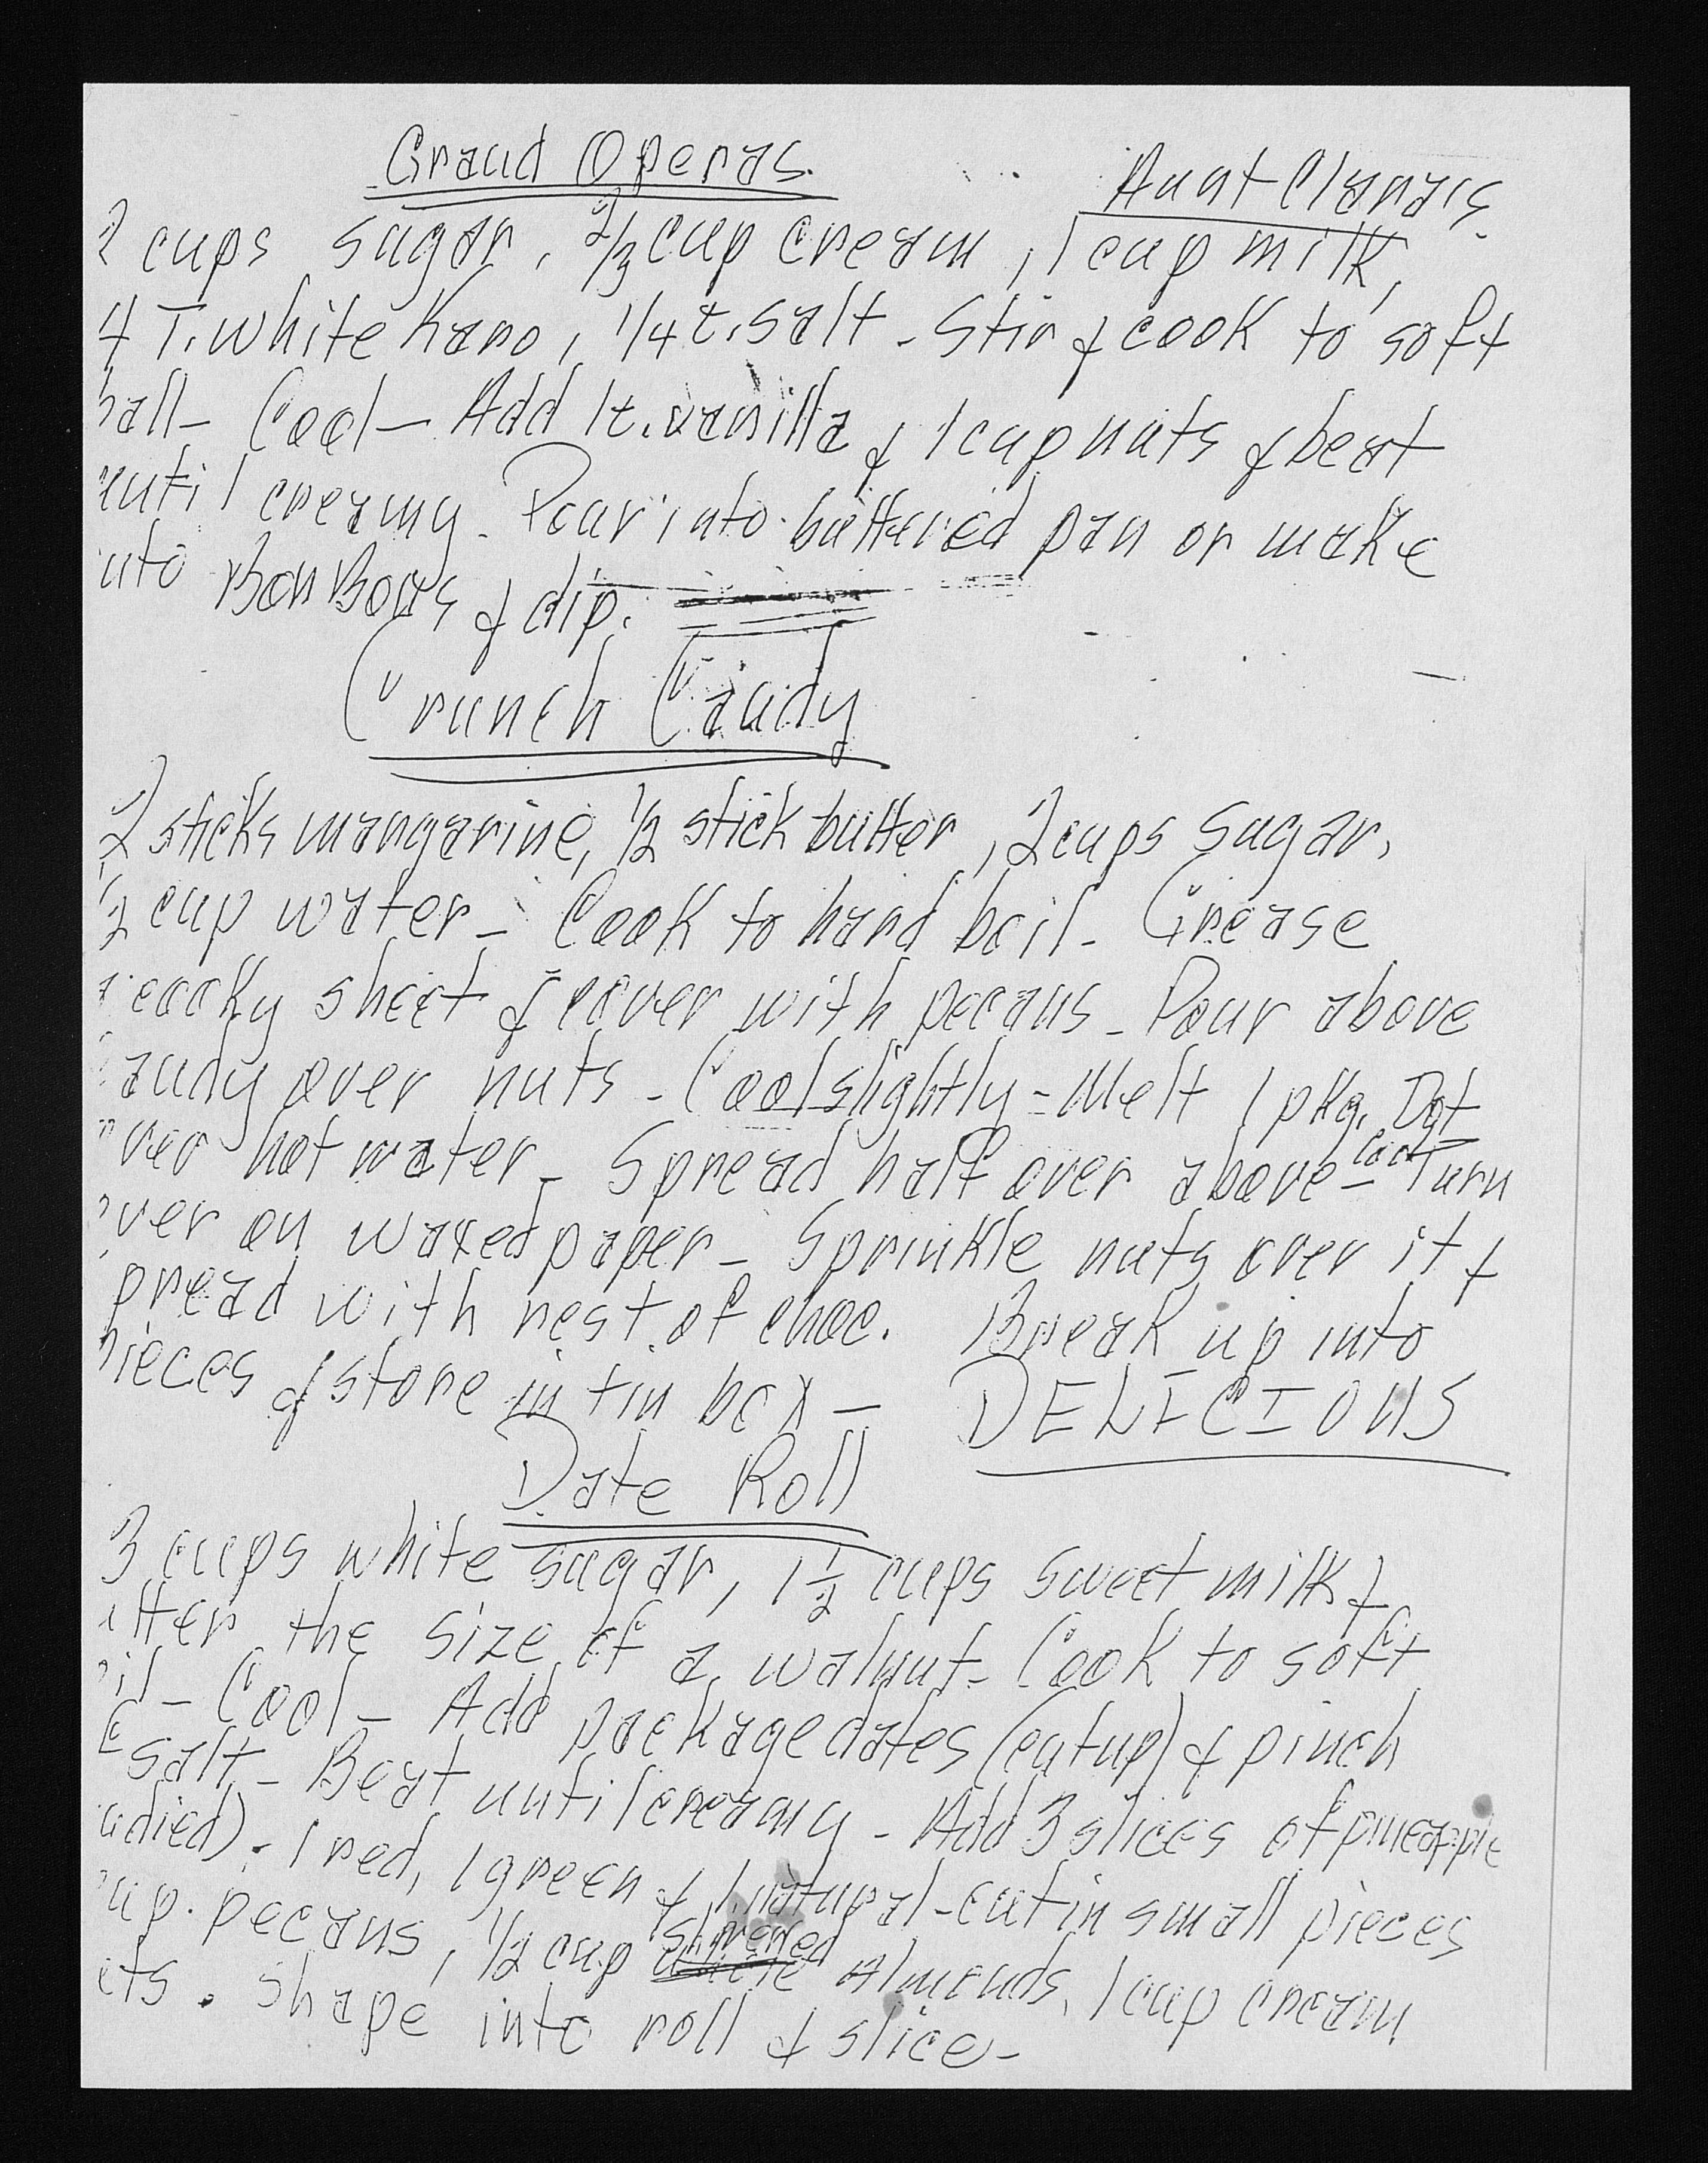 Grand Operas.
Aunt Clara's
2 cups sugar, 2/3 cup cream, 1 cup milk,
4 T. white Karo, 1/4 t. salt - Stir & cook to soft
ball - Cool - Add 1 t. vanilla & 1 cup nuts & beat
until creamy. Pour into buttered pan or make
into BonBons & dip.
Crunch Candy
2 sticks margarine, 1/2 stick butter, 2 cups sugar,
1/2 cup water - Cook to hard boil - Grease
cooky sheet & cover with pecans - Pour above
andy over nuts - Cool slightly - Melt 1 pkg. Dot
ver hot water - Spread half over above - Cool Turn
ver on waxed paper - Sprinkle nuts over it &
pread with rest of choc. Break up into
pieces & store in tin box - DELICIOUS
Date Roll
3 cups white sugar, 1 1/2 cups sweet milk &
utter the size of a walnut - Cook to soft
oil - Cool - Add package dates (cut up) & pinch
salt - Beat until creamy - Add 3 slices of pineapple
ndied). 1 red, 1 green & 1 natural - cut in small pieces
up. pecans, 1/2 cup slivered almonds, 1 cup cream
uts. Shape into roll & slice -